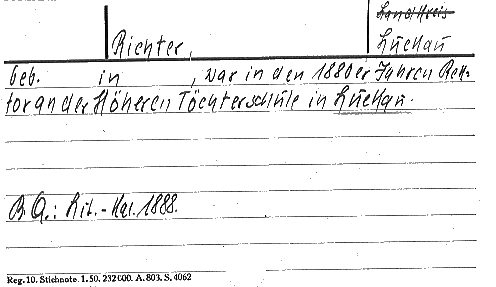 Land: Kreis
Richter,
Luckau
geb. in , war in den 1880er Jahren Rek-
tor an der Höheren Töchterschule in Luckau.
B. Q.: Lit.-Kal. 1888.
Reg. 10. Stichnote. 1. 50. 232000. A. 803. S. 4062